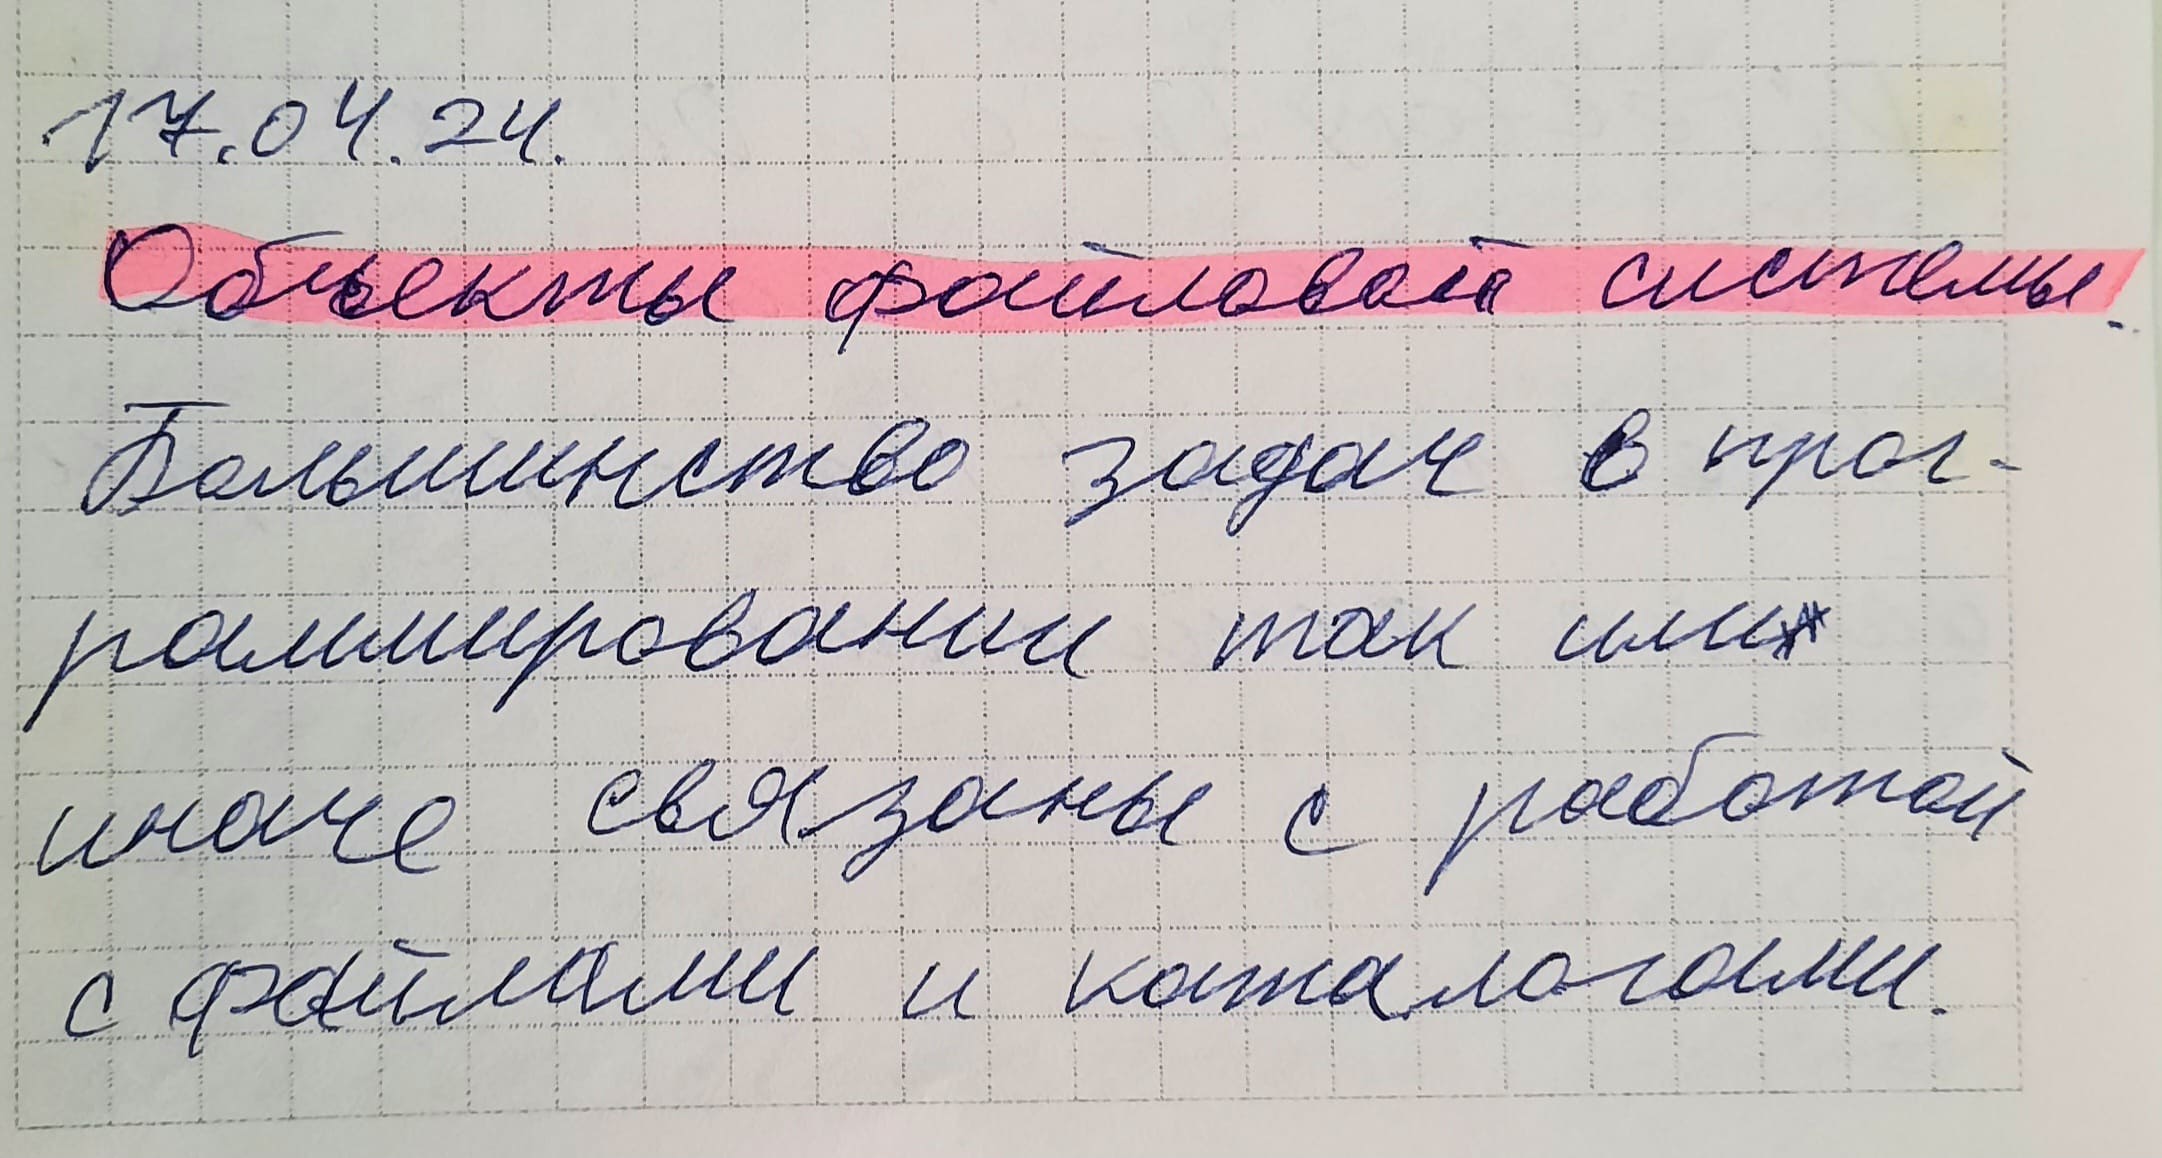 17.04.24.
Объекты файловой системы.
Большинство задач в прог-
раммировании так или
иначе связаны с работой
с файлами и каталогами.